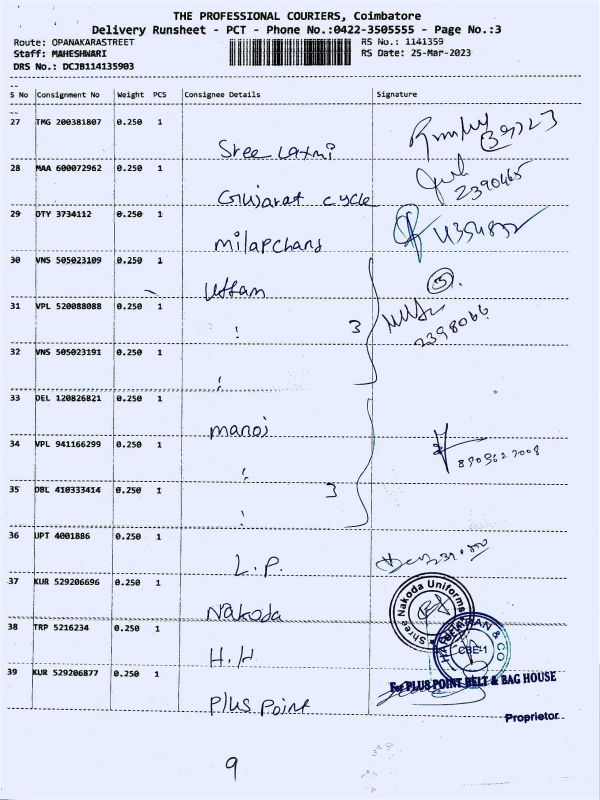 THE PROFESSIONAL COURIERS, Coimbatore
Delivery Runsheet - PCT - Phone No.:0422-3505555 - Page No.:3
Route: OPANAKARASTREET RS No.: 1141359
Staff: MAHESHWARI RS Date: 25-Mar-2023
DRS No.: DCJB114135903
S No Consignment No Weight PCS Consignee Details Signature
27 TMG 200381807 0.250 1
Sree Laxmi
28 MAA 600072962 0.250 1
Gujarat cycle 2390465
29 OTY 3734112 0.250 1
milapchand
30 VNS 505023109 0.250 1
Uttam
31 VPL 520088088 0.250 1
3 2398066
32 VNS 505023191 0.250 1
33 DEL 120826821 0.250 1
manoj
34 VPL 941166299 0.250 1
35 DBL 410333414 0.250 1
3
36 UPT 4001886 0.250 1
L.P.
37 KUR 529206696 0.250 1
Shree Nakoda Uniforms
Nakoda
38 TRP 5216234 0.250 1
& CO
CBE-1
H.H
39 KUR 529206877 0.250 1
For PLUS POINT BELT & BAG HOUSE
Plus Point
Proprietor
9